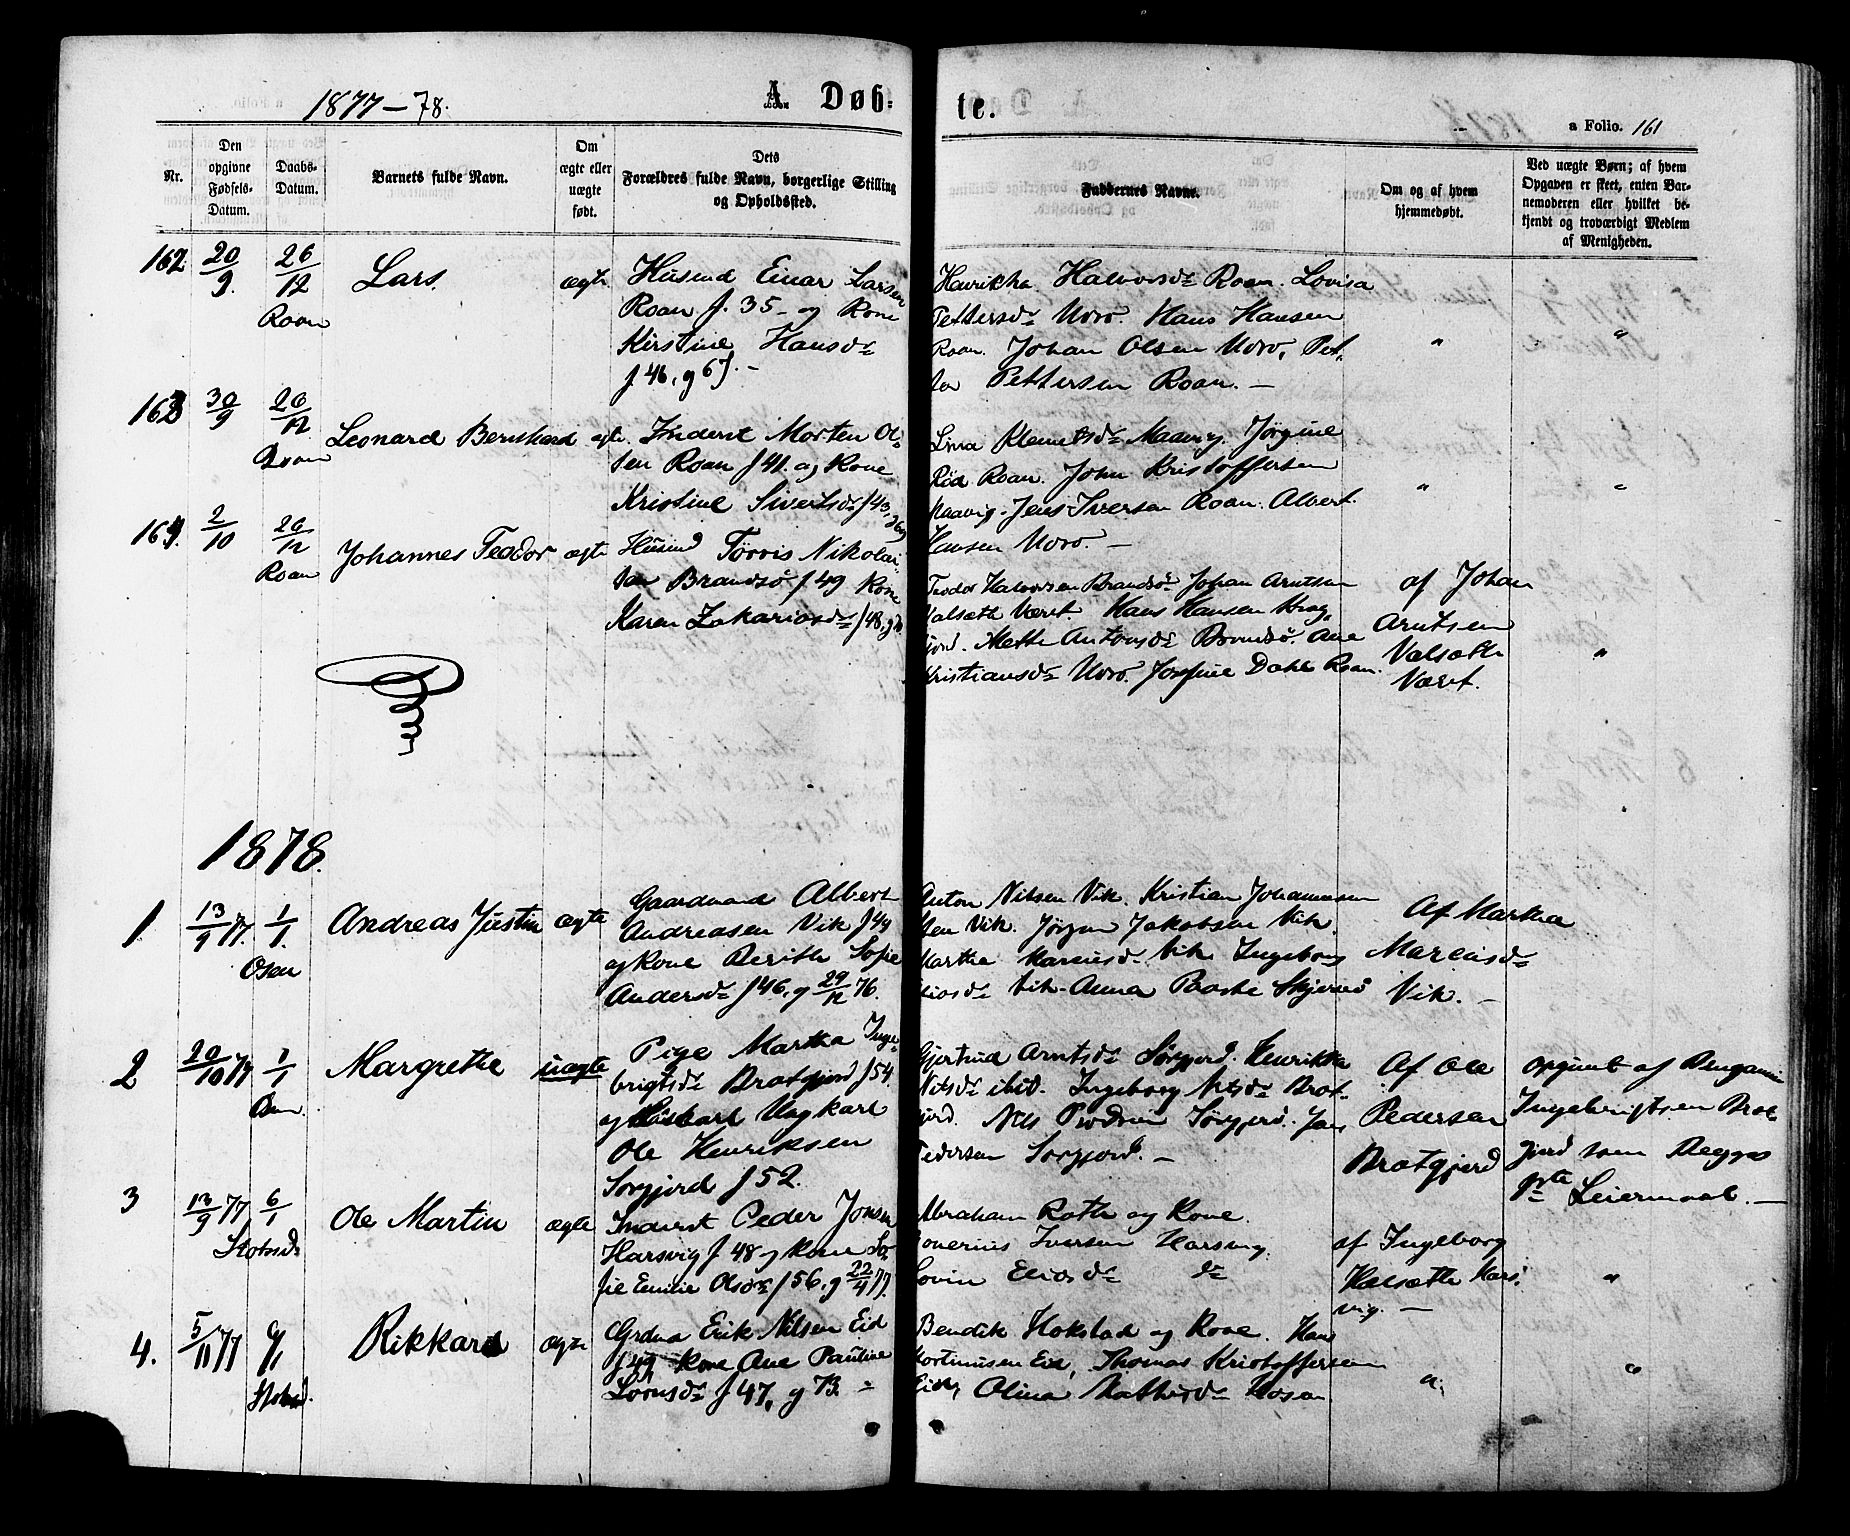 1877-78.
A Døb-
te.
a Folio. 161
Nr.
Den
opgivne
Fødsels-
Datum.
Daabs-
Datum.
Barnets fulde Navn.
Om
ægte eller
uægte
født.
Dets
Forældres fulde Navn, borgerlige Stilling
og Opholdssted.
Faddernes Navne.
Om og af hvem
hjemmedøbt.
Ved uægte Børn; af hvem
Opgaven er skeet, enten Bar-
nemoderen eller hvilket be-
kjendt og troværdigt Medlem
af Menigheden.
162 20/9. 26/12 Roan
Lars. ægte
Husmd Einar Larsen
Roan f. 35 og Kone
Kirstine Hansdr
f 46, g 67.-
Henrikka Halvorsdr Roan. Lovisa
Pettersdr Moro. Hans Hansen
Roan. Johan Olsen Moro, Pet-
ter Pettersen Roan. -
" "
163 30/9 26/12 Roan
Leonard Bernhard ægte
Inderst Morten Ol-
sen Roan f 41. og Kone
Kristine Sivertsdr f 43,
Lina Klemetsdr Maavig. Jørgine
Röd Roan. John Kristoffersen
Maavig. Jens Iversen Roan. Albert
Hansen Moro. -
" "
164. 2/10 26/12 Roan
Johannes Teodor ægte
Husmd Torris Nikolai-
sen Brandsø f 49 Kone
Karen Zakariasdr f 48, g
Teodor Halvorsen Brandsø. Johan Arntsen
Valsæth Været. Hans Hansen Krog-
fjord. Mette Antonsdr Brandsø. Ane
Kristiansdr Moro. Josefine Dahl Roan.
af Johan
Arntsen
Valsæth
Været.
"
1878.
1. 13/9 77. 1/1. Osen
Andreas Justin ægte
Gaardmand Albert
Andreasen Vik f 49
og Kone Berith Sofie
Andersdr f 46, g 29/12 76.
Anton Nilsen Vik. Kristian Johannes-
sen Vik. Jørgen Jakobsen Vik.
Martha Mareusdr Vik Ingeborg
Eliasdr Vik. Anna Skjervø
Af Martha
Mareusdr
Vik. -
2 20/10 77 1/1 Osen
Margrethe uægte
Pige Martha Inge-
brigtsdr Bratgjerd f 54
og Ungkarl
Ole Henriksen
Sørgjerd f 52.
Gjertrud Arntsdr Sørgjerd. Henrikka
Nilsdr ibid. Ingeborg Nilsdr Brat-
gjerd. Nils Sørgjerd. Jens
Pedersen Sørgjerd. -
Af Ole
Pedersen
Bratgjerd
Opgivet af Bengamin
Ingebrigtsen Brat-
gjerd som Begges
Leiermaal. -
3 13/9 77 6/1 Stoksd
Ole Martin ægte
Inderst Peder Jonsen
Harsvig f 48 og Kone So-
fie Emilie Olsdr f 56, g 22/4 77.
Abraham Roth og Kone.
Iversen Harsvig.
Lovin Eliasdr dr
af Ingeborg
Halsæth Hars-
vig. -
"
4. 5/11 77 6/1 Stoksd.
Rikkard ægte
Grdmd Erik Nilsen Eid
f 49 Kone Ane Pauline
Lornsdr f 47, g 73. -
Bendik Hokstad og Kone. Hans
Mortinusen Eid, Thomas Kristoffersen
Eid, Olina Hosen.
" "